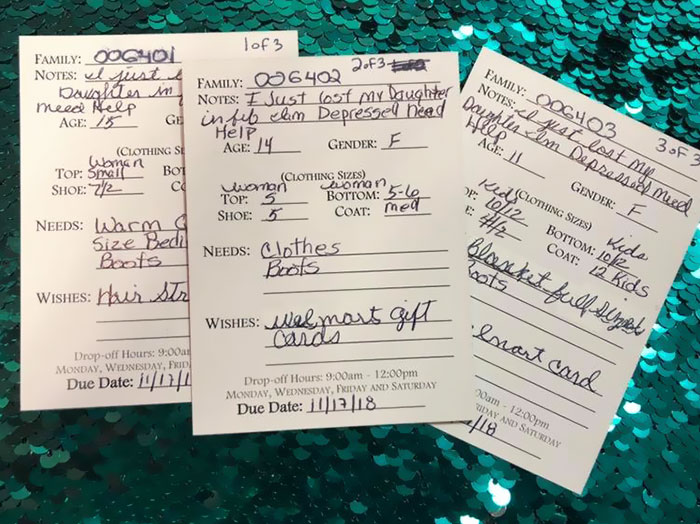 1 of 3
FAMILY: 006401
NOTES: I just
Daughter in
need Help
AGE: 15
(CLOTHING
Woman
TOP: Small
SHOE: 7/2
NEEDS: Warm
Size
Boots
WISHES: Hair
Drop-off Hours: 9:00a
MONDAY, WEDNESDAY, FRIDAY
Due Date: 11/17/1
2 of 3
FAMILY: 006402
NOTES: I Just lost my Daughter
in feb Depressed need
Help
AGE: 14 GENDER: F
(CLOTHING SIZES)
woman woman
TOP: 5 BOTTOM: 5-6
SHOE: 5 COAT: med
NEEDS: Clothes
Boots
WISHES: Walmart gift
Cards
Drop-off Hours: 9:00am - 12:00pm
MONDAY, WEDNESDAY, FRIDAY AND SATURDAY
Due Date: 11/17/18
FAMILY: 006403
3 of 3
NOTES: I just lost my
Daughter Depressed need
Help
AGE: 11
GENDER: F
(CLOTHING SIZES)
Kids Kids
10/12 BOTTOM: 10/12
4/2 COAT: 12 Kids
Blanket full size
Boots
card
:00am - 12:00pm
FRIDAY AND SATURDAY
/18